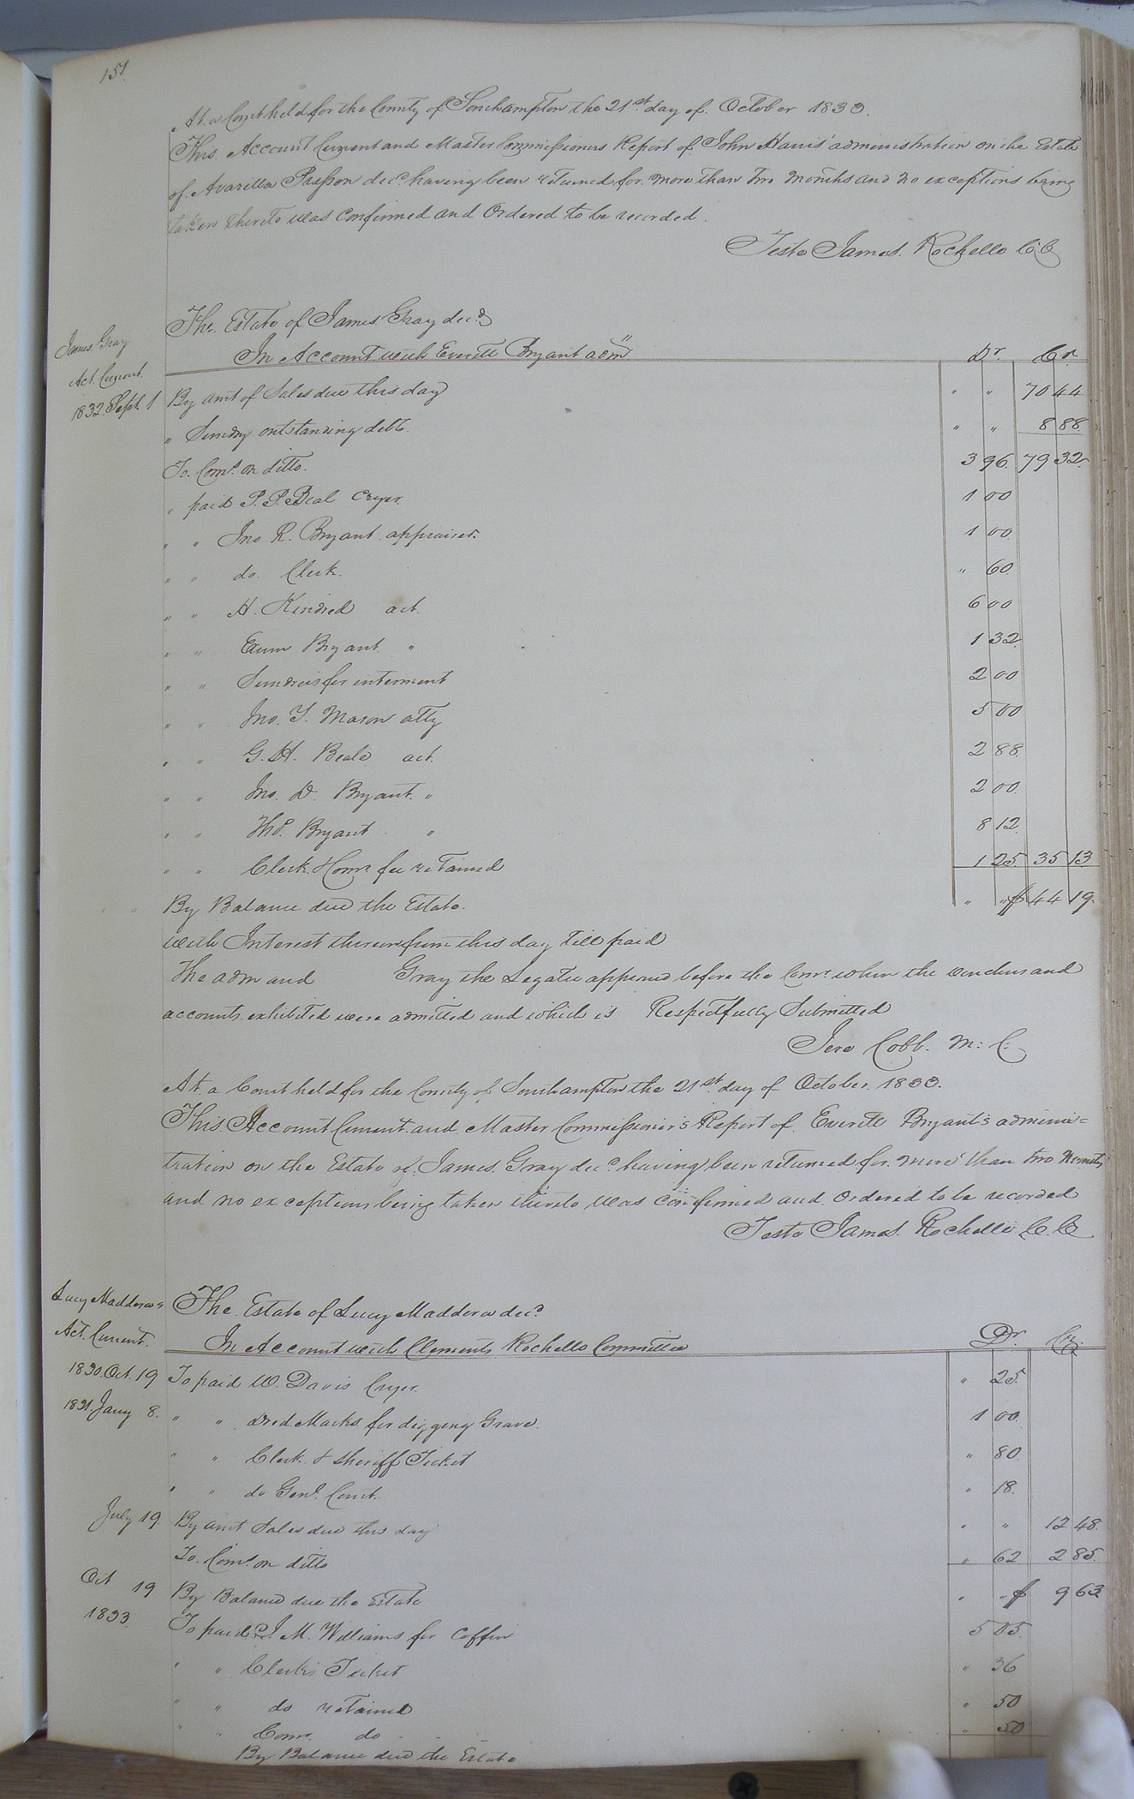 151.
At a Court held for the County of Southampton the 21st day of October 1833.
This Account Current and Master Commissioners Report of John Harris' administration on the Estate
of Avarilla decd. having been returned for more than two months and no exceptions being
taken thereto was confirmed and Ordered to be recorded.
Teste James Rochelle C C
The Estate of James Gray decd
In Account with Everett Bryant adm Dr. Cr.
James Gray
Act. Current.
1832. Sept. 1 By amt of Sales due this day " " 70 44
" Sundry outstanding debts. " " 8 88
To Coms. on ditto. 3 96 79 32
" paid P. P. Beal Cryer. 1 00
" " Jno R. Bryant appraiser. 1 00
" " do. Clerk. " 60
" " H. Kindred act. 6 00
" " Exum Bryant " 1 32
" " Sundries for interment 2 00
" " Jno. Y. Mason atty 5 00
" " G. H. Beale act. 2 88
" " Jno. D. Bryant. " 2 00
" " Thos. Bryant " 8 12
" " Clerk & Comr fee retained 1 25 35 13
By Balance due the Estate. " " $ 44 19.
with Interest thereon from this day till paid
The adm and Gray the Legatee appeared before the Comr when the vouchers and
accounts exhibited were admitted and which is Respectfully Submitted
Jere Cobb. M: C.
At a Court held for the County of Southampton the 21st day of October 1833.
This Account Current and Master Commissioner's Report of Everett Bryant's adminis-
tration on the Estate of James Gray decd. having been returned for more than two Months
and no exceptions being taken thereto was confirmed and ordered to be recorded
Teste James Rochelle C. C.
Lucy Maddera's
Act. Current.
The Estate of Lucy Maddera decd.
In Account with Clements Rochelle Committee Dr. Cr.
1830. Oct. 19 To paid W. Davis Cryer. " 25
1831. Jany 8. " " Dred Marks for digging Grave 1 00.
" " Clerk & Sheriff Ticket " 80
" " do Genl. Court. " 18.
July 19 By amt Sales due this day " " 12 48
To Coms. on ditto " 62 2 85
Oct 19 By Balance due the Estate " " $ 9 63
1833. To paid J. M. Williams for Coffin 5 05
" " Clerks Ticket " 36
" " do retained " 50
" " Comr. do " 50
By Balance due the Estate